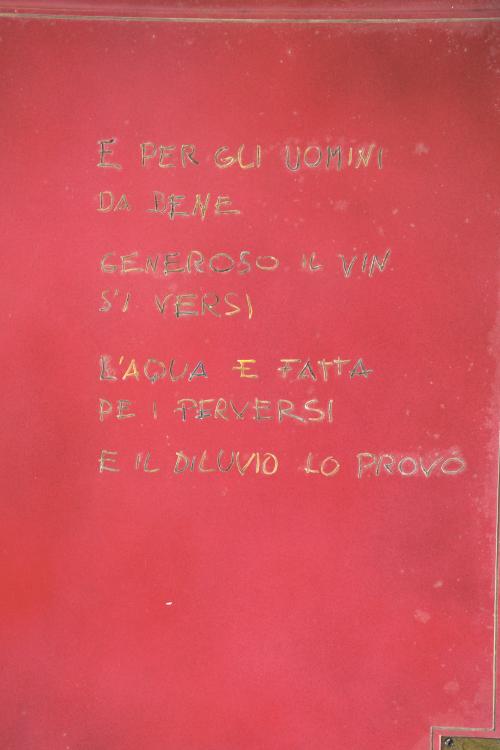 E PER GLI UOMINI
DA BENE
GENEROSO IL VIN
S'I VERSI
L'AQUA E FATTA
PE I PERVERSI
E IL DILUVIO LO PROVÒ